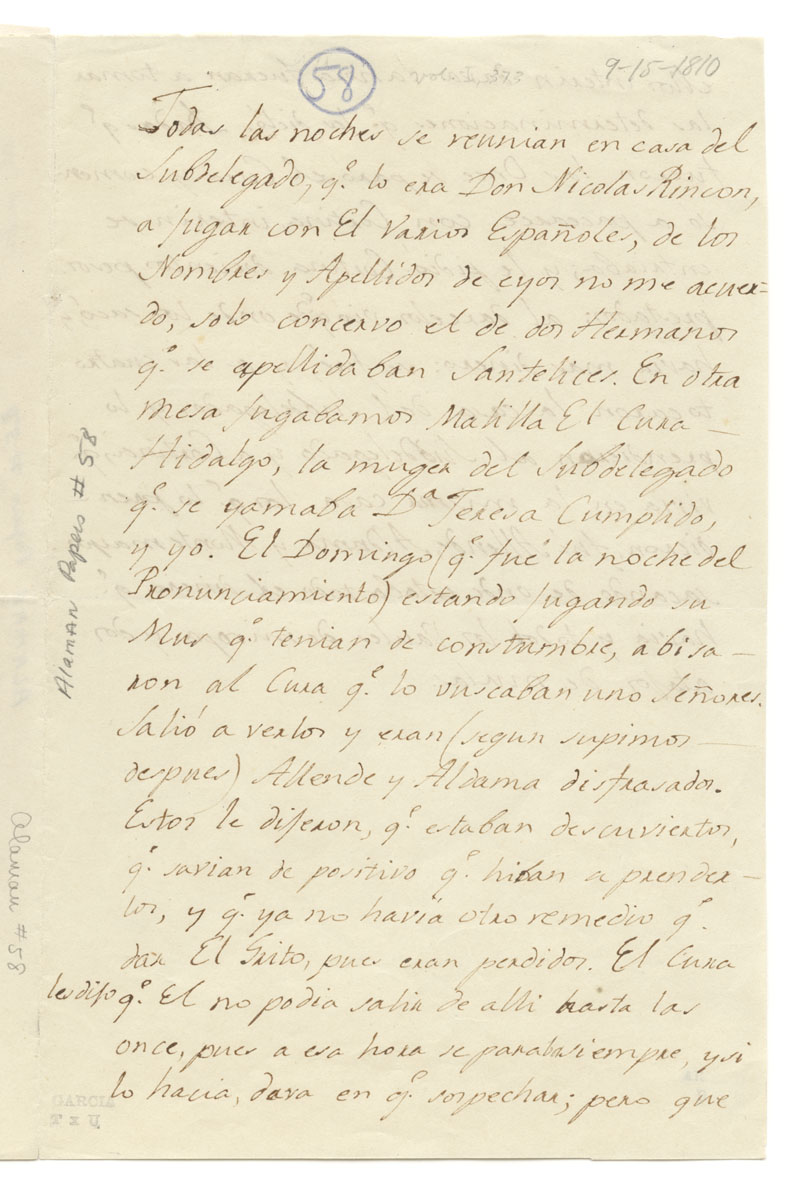 58
9-15-1810
Todas las noches se reunian en casa del
Subdelegado, q.e lo era Don Nicolas Rincon,
a jugar con El varios Españoles, de los
Nombres y Apellidos de eyos no me acuer-
do, solo concervo el de dos Hermanos
q.e se apellidaban Santelices. En otra
mesa jugabamos Malilla El Cura –
Hidalgo, la muger del Subdelegado
q.e se yamaba D.a Teresa Cumplido,
y yo. El Domingo (q.e fue la noche del
Pronunciamiento) estando jugando su
Mus q.e tenian de constumbre, abisa –
ron al Cura q.e lo vuscaban uno Señores.
Salió a verlos y eran (segun supimos –
despues) Allende y Aldama disfrasados.
Estos le dijeron, q.e estaban descuviertos,
q.e savian de positivo q.e hiban a prender –
los, y q.e ya no havia otro remedio q.e
dar El Grito, pues eran perdidos. El Cura
les dijo q.e El no podia salir de alli hasta las
once, pues a esa hora se paraba siempre, y si
lo hacia, dava en q.e sospechar; pero que
Alaman Papers # 58
Alaman # 58
GARCIA
TxU